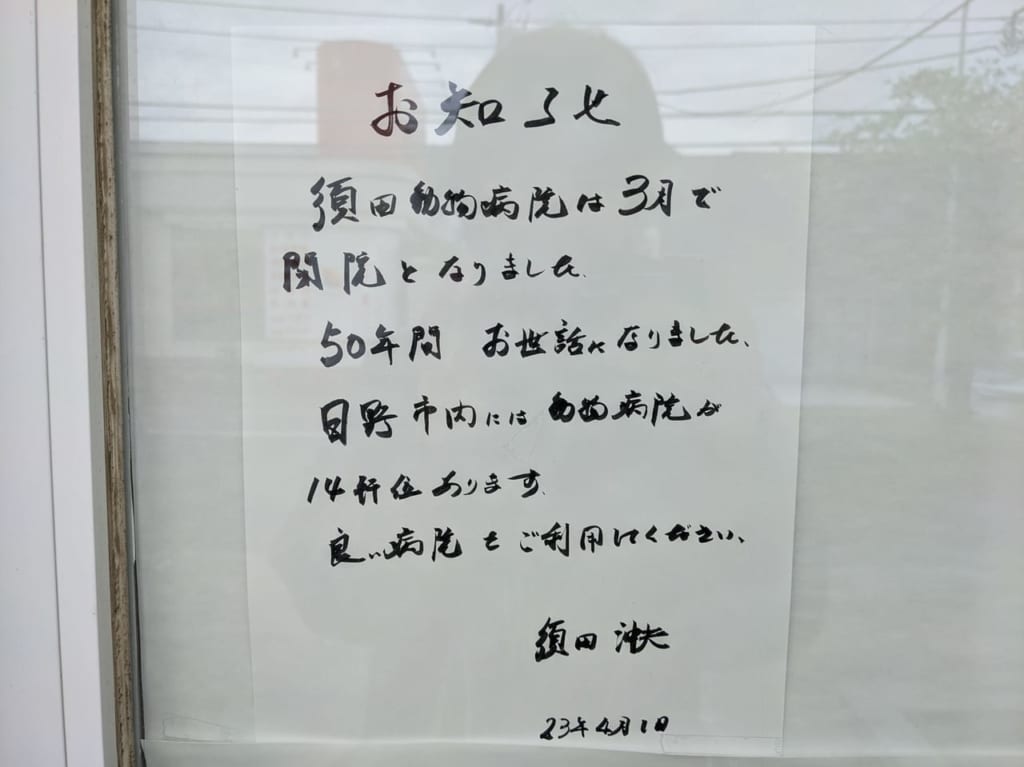 お知らせ
須田動物病院は3月で
閉院となりました.
50年間 お世話になりました、
日野市内には動物病院が
14軒位あります.
良い病院をご利用ください、
須田 沖夫
23年4月1日